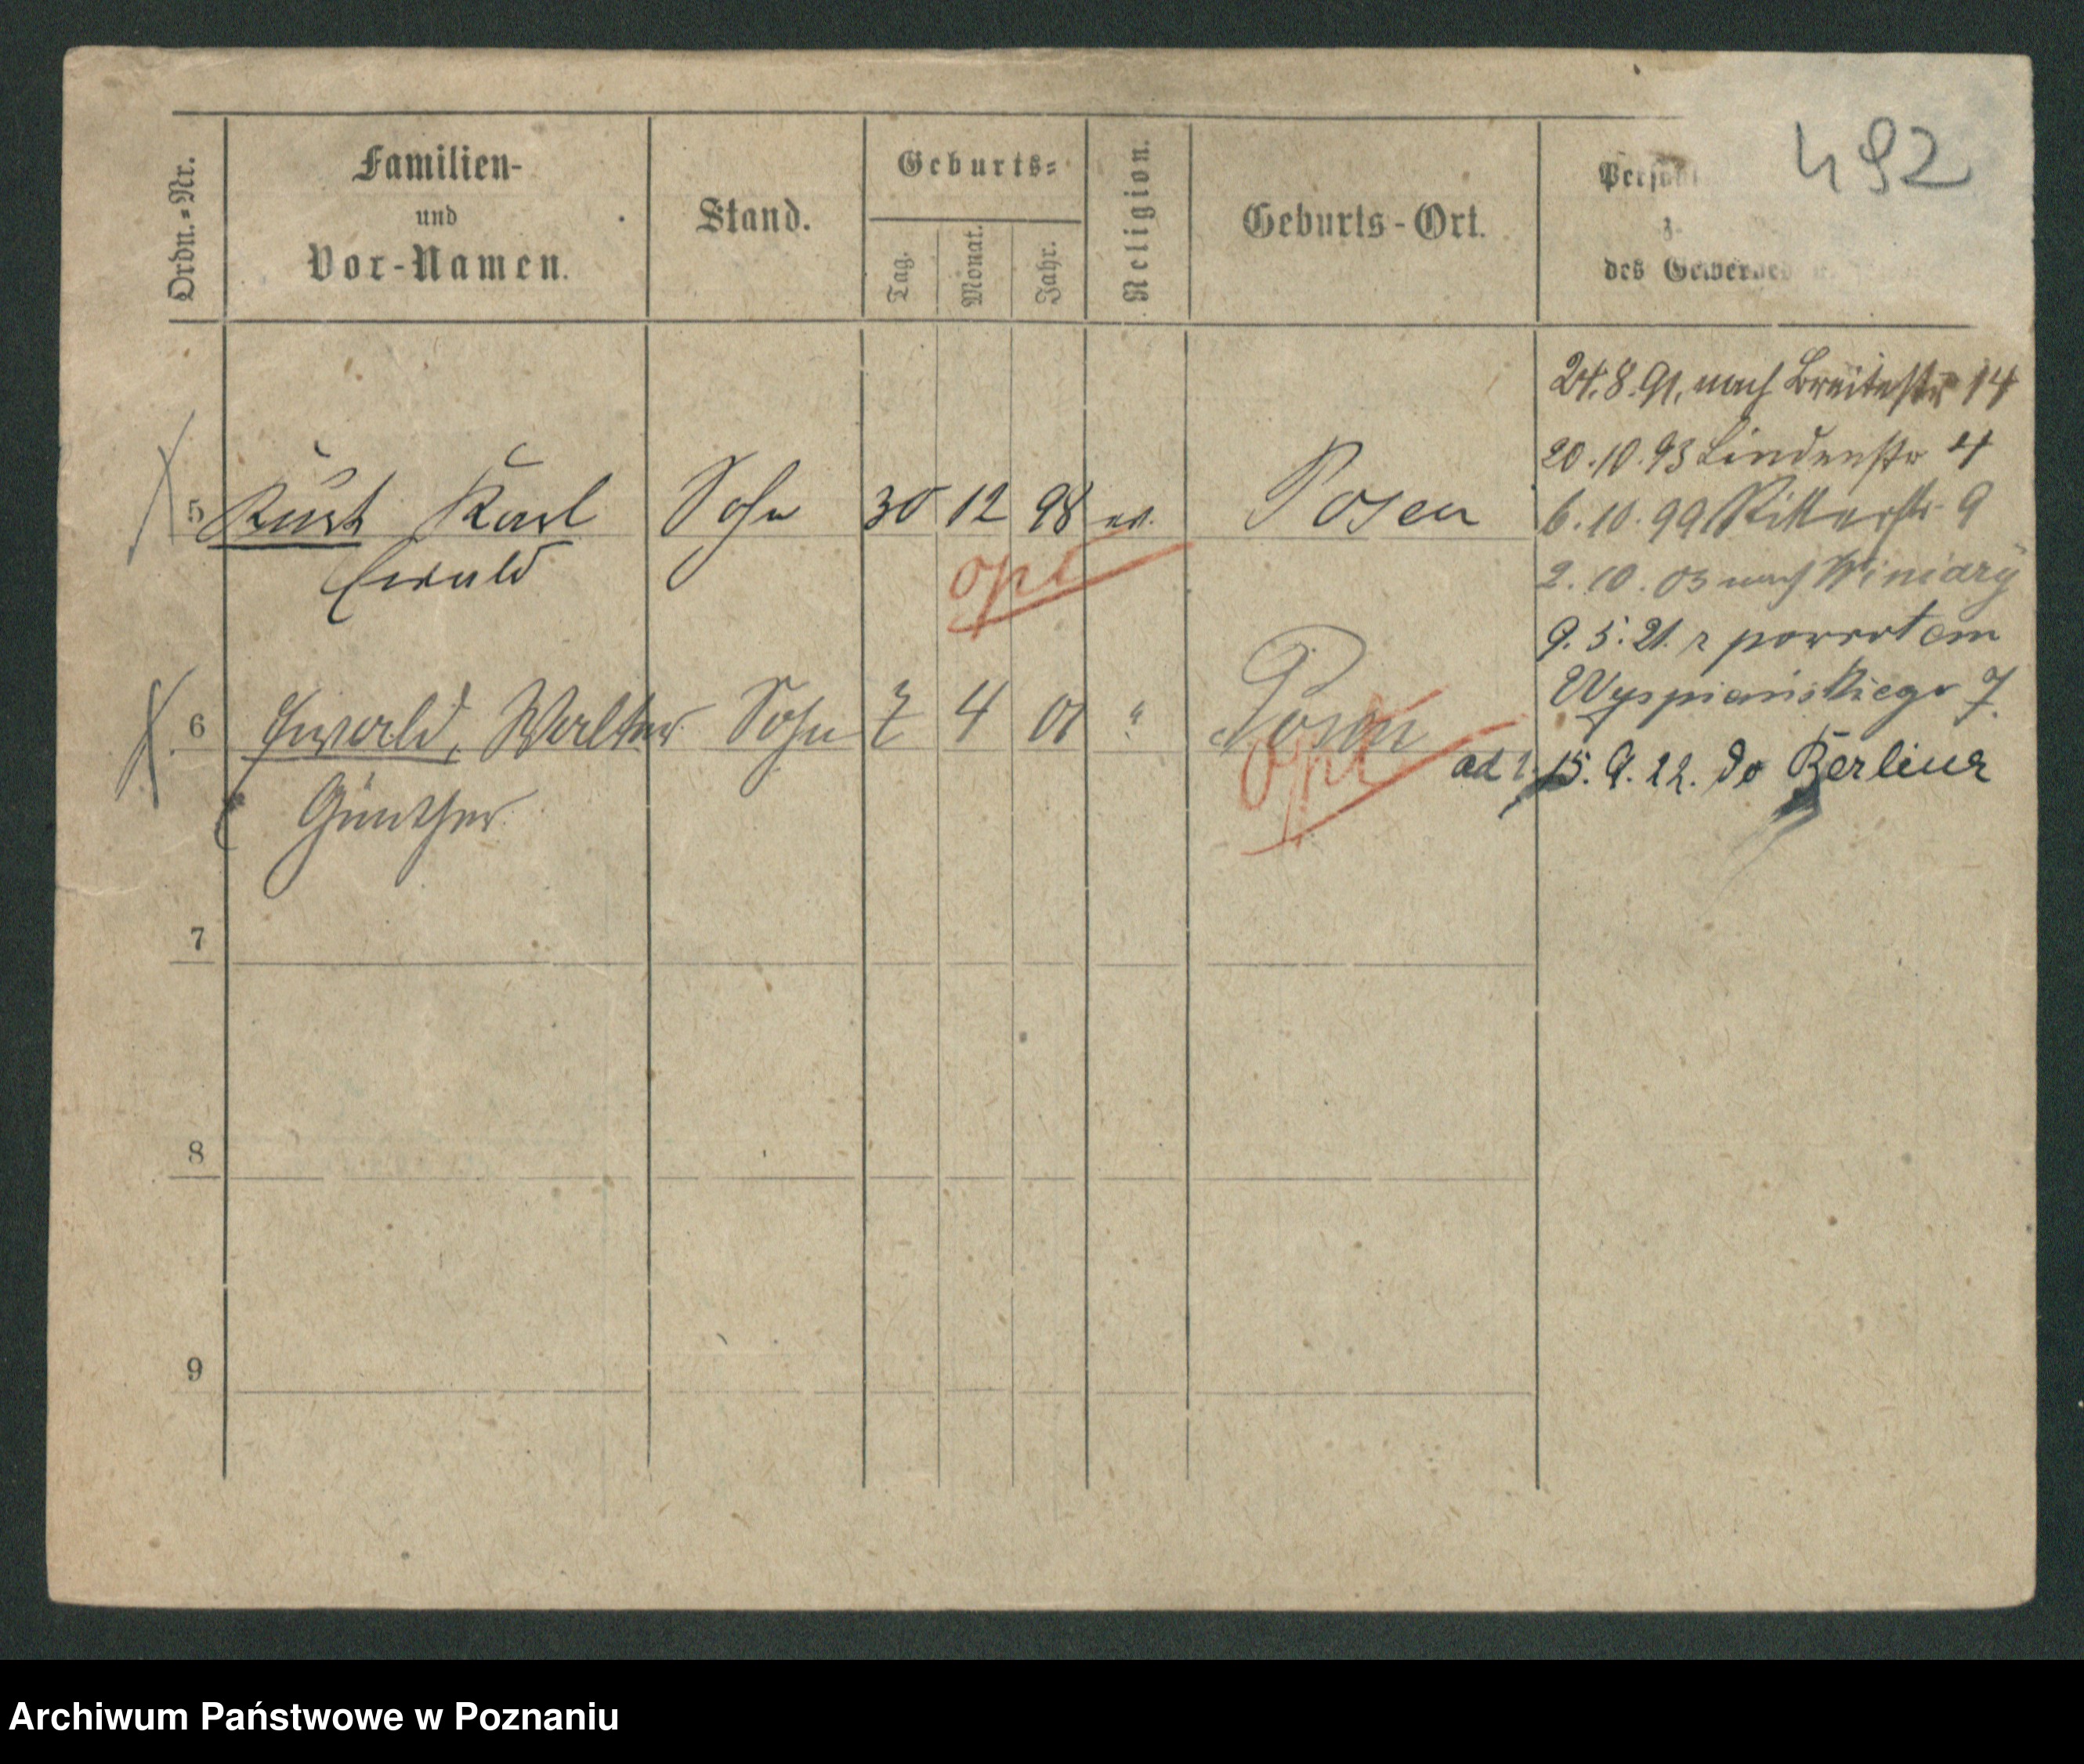 492
Ordn.=Nr.
Familien-
und
Vor-Namen.
Stand.
Geburts=
Tag.
Monat.
Jahr.
Religion.
Geburts-Ort.
des Gewerbes
24.8.91. nach Breitestr 14
20.10.93 Lindenstr 4
6.10.99 Ritterstr. 9
2.10.03 nach Winiary
9.5.21. z powrotem
Wyspiańskiego 7.
ad 2. 15.9.22. do Berlina
5 Kurt Karl Sohn 30 12 98 ev. Posen
Ewald
opt
6 Ewald, Walter Sohn 7 4 01 " Posen
Günther
opt
7
8
9
Archiwum Państwowe w Poznaniu